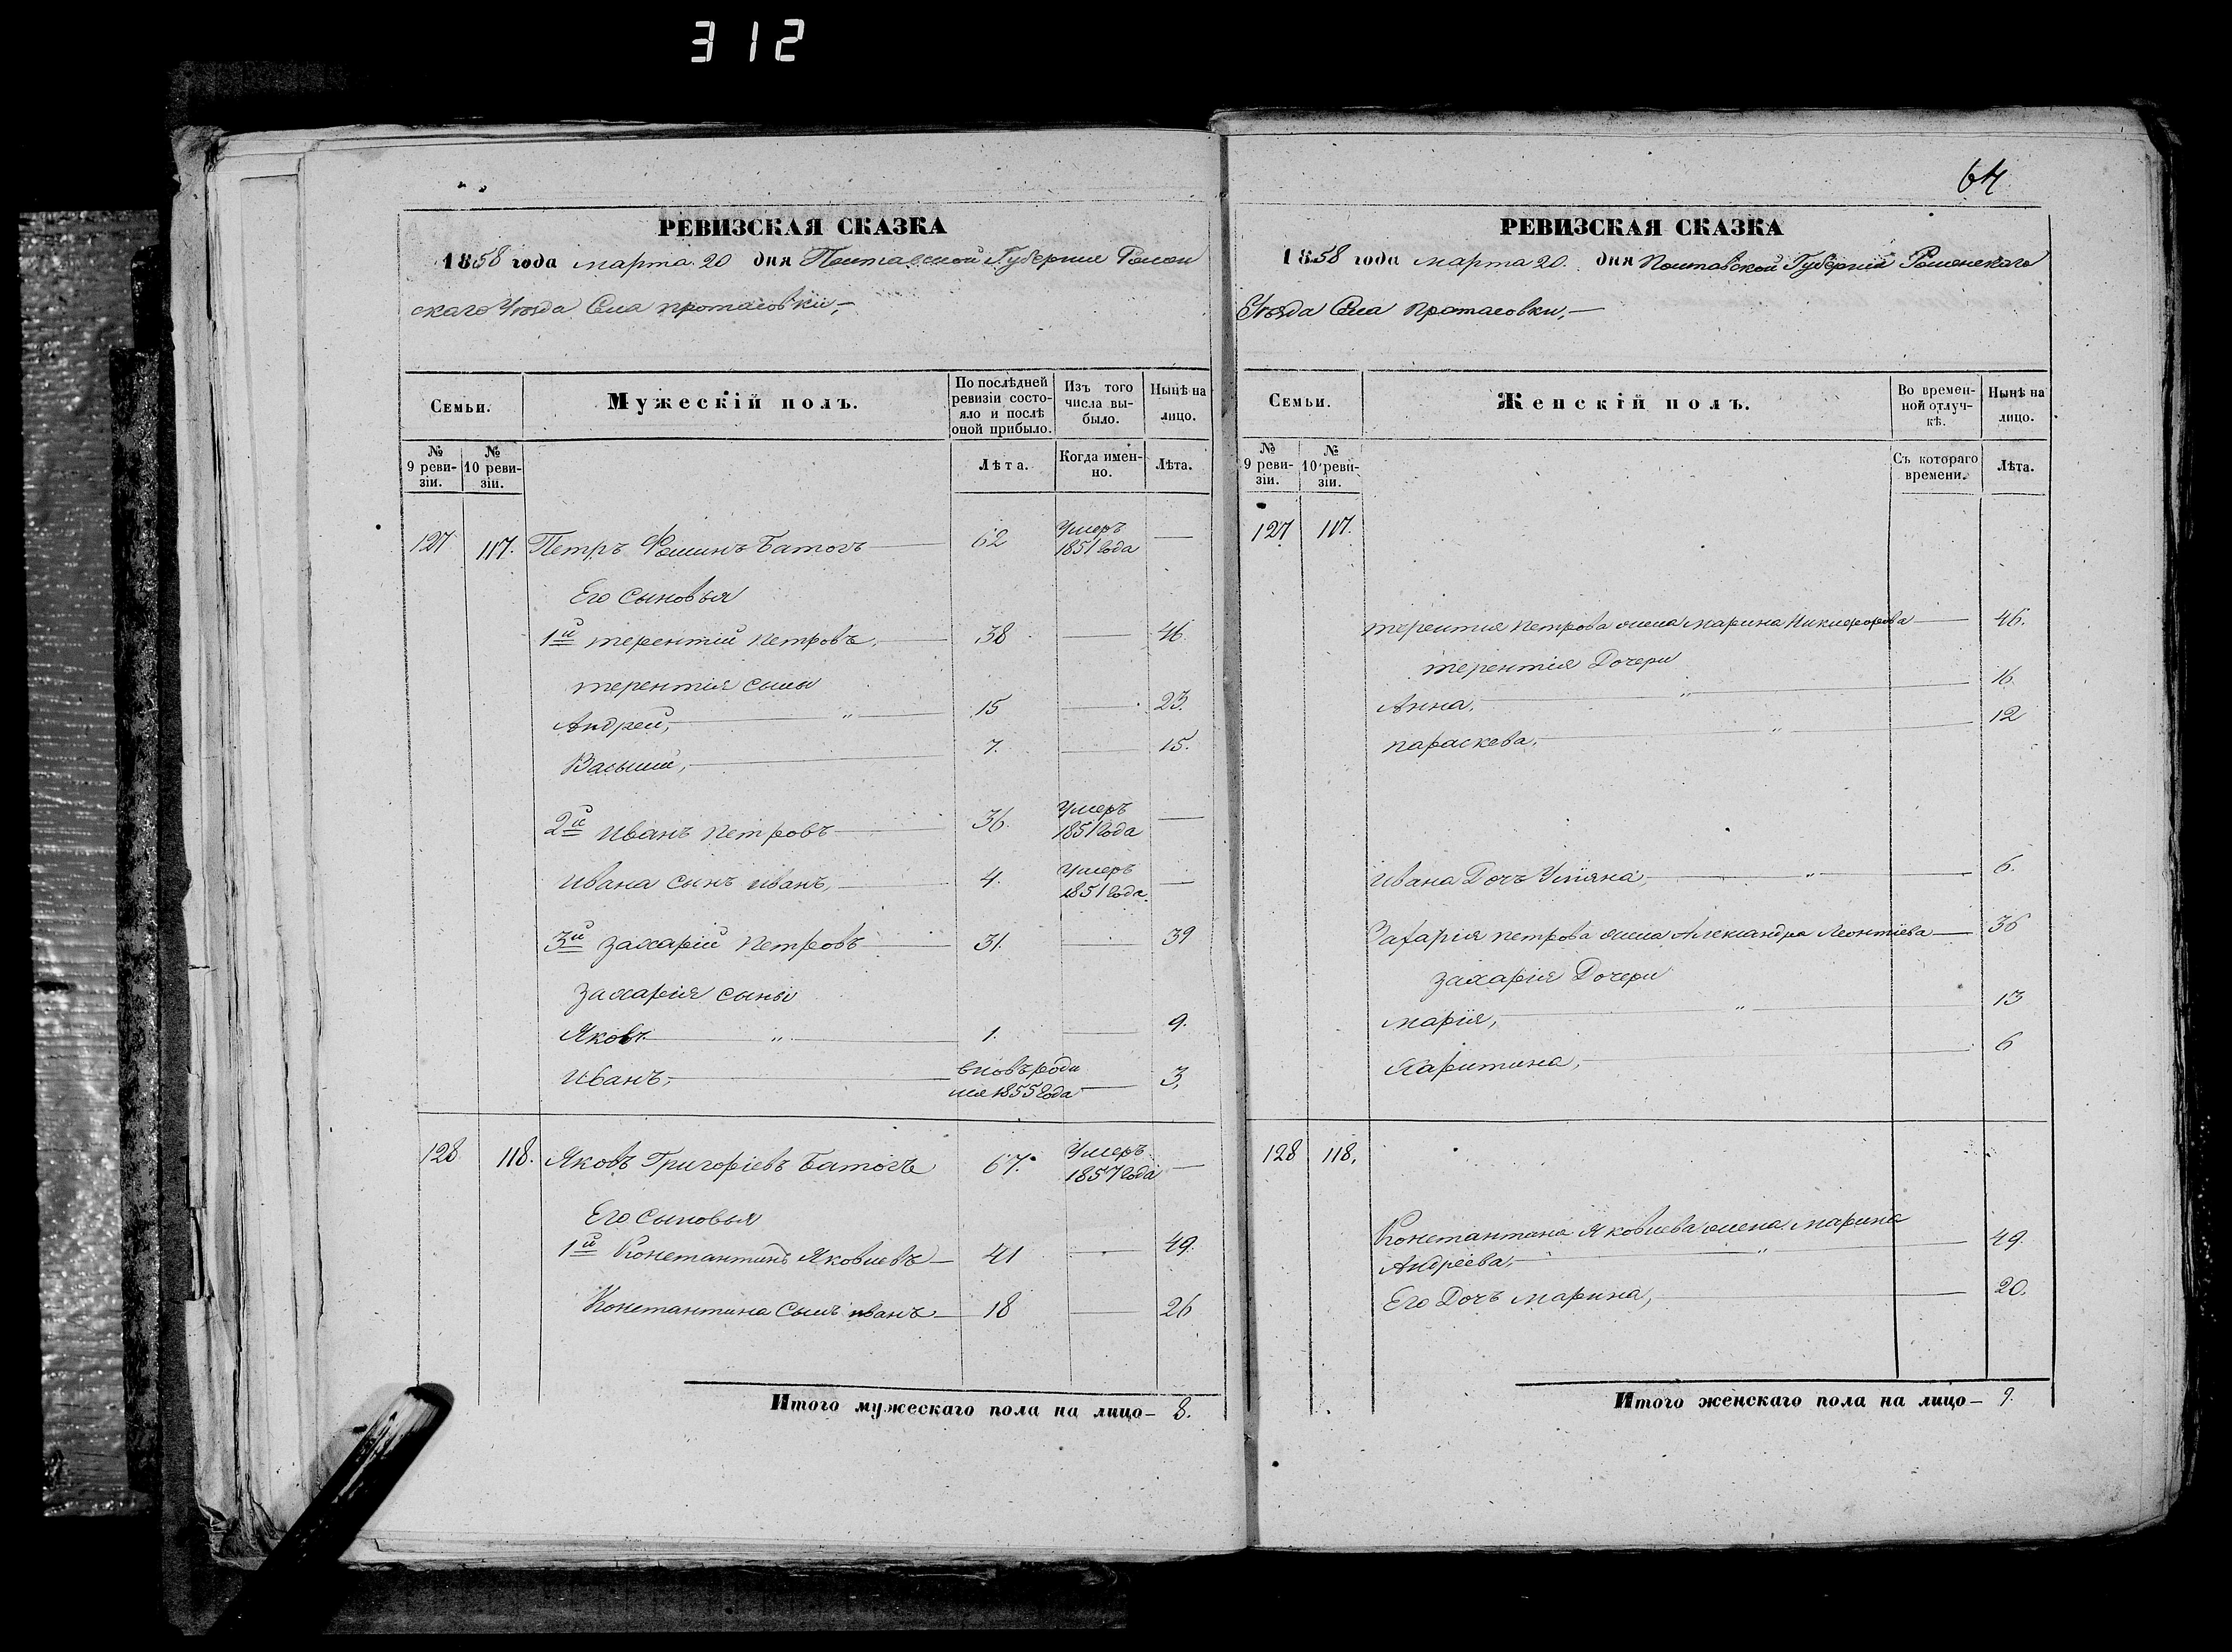 312
64
РЕВИЗСКАЯ СКАЗКА
1858 года марта 20 дня Полтавской Губернии Ромен
скаго Уѣзда Села протасовки,—
Семьи.
Мужескій полъ.
По послѣдней ревизіи состояло и послѣ оной прибыло.
Изъ того числа выбыло.
Нынѣ на лицо.
№ 9 ревизіи.
№ 10 ревизіи.
Лѣта.
Когда именно.
Лѣта.
127 117. Петръ Фоминъ Батогъ — 62 Умеръ 1851 года —
Его сыновья
1й терентий петровъ, — 38 — 46.
терентия сыны
Андрей, — " — 15 — 23.
Василий, — 7. — 15.
2й иванъ петровъ — 36. Умеръ 1851 года —
ивана сынъ иванъ, — 4. Умеръ 1851 года. —
3й захарий петровъ — 31. — 39
захария сыны
Яковъ — " — 1. — 9.
иванъ, — вновь роди
лся 1855 года — 3,
128. 118. Яковъ Григоріевъ Батогъ 67. Умеръ 1857 года —
Его сыновья
1й Константинъ Яковлевъ — 41 — 49.
Константина сынъ иванъ — 18 — 26
Итого мужескаго пола на лицо — 8.
РЕВИЗСКАЯ СКАЗКА
1858 года марта 20. дня полтавской Губерніи Роменскаго
Уѣзда Села протасовки, —
Семьи.
Женскій полъ.
Во временной отлучкѣ.
Нынѣ на лицо.
№ 9 ревизіи.
№ 10 ревизіи.
Съ котораго времени.
Лѣта.
127 117.
терентия петрова жена марина никифорова — 46.
терентія Дочери
Анна, — " — 16
параскева, — " — 12
ивана Дочъ Уліяна, — " — 6.
Захарія петрова жена Александра Леонтіева — 36
захарія Дочери
марія, — " — 13
Харитина, — 6
128 118,
Константина Яковлева жена марина
Андреева, — " — 49.
Его Дочъ марина, — 20.
Итого женскаго пола на лицо — 9.